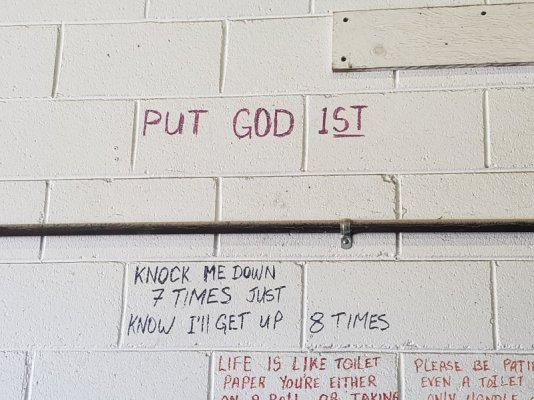 PUT GOD 1ST
KNOCK ME DOWN
7 TIMES JUST
KNOW I'll GET UP 8 TIMES
LIFE IS LIKE TOILET
PAPER YOU'RE EITHER
ON A ROLL OR TAKING
PLEASE BE
EVEN A TOILET
ONLY HANDLE